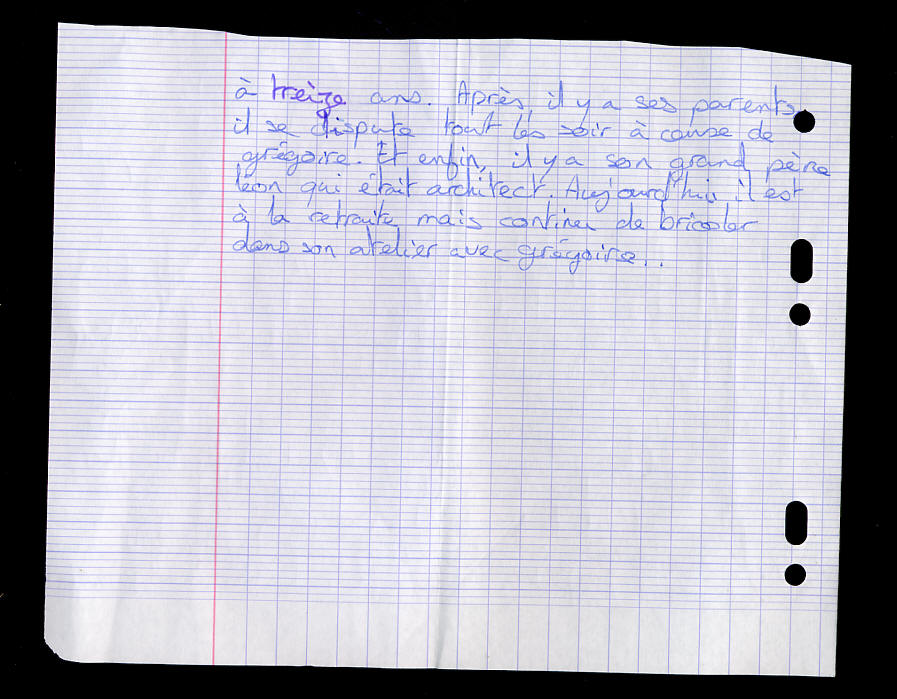 à treize ans. Après, il y a ses parents,
il se dispute tout les soir à cause de
grégoire. Et enfin, il y a son grand père
leon qui était architect. Aujourd'hui, il est
à la retraite mais continu de bricoler
dans son atelier avec grégoire..